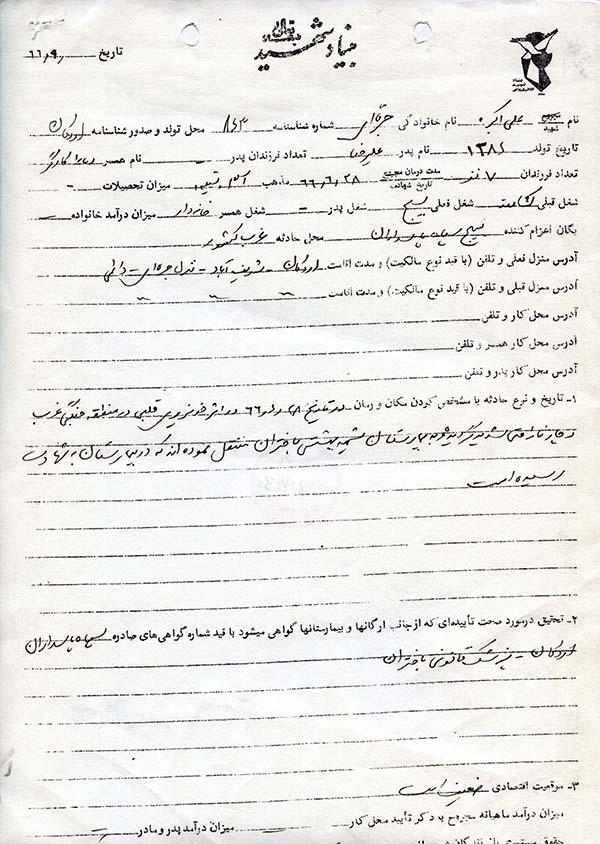 بسمه تعالی
بنیاد شهید
تاریخ ۶۶/۹/
نام مجروح شهید علی اکبر نام خانوادگی شماره شناسنامه ۸۶۳ محل تولد و صدور شناسنامه اردکان
تاریخ تولد ۱۳۸۶ نام پدر علیرضا تعداد فرزندان پدر - نام همسر
تعداد فرزندان ۷ نفر مدت درمان مجروحی تاریخ شهادت ۶۶/۶/۲۸ مذهب میزان تحصیلات -
شغل قبلی شغل فعلی بسیج شغل پدر - شغل همسر خانه‌دار میزان درآمد خانواده
یگان اعزام کننده بسیج سپاه پاسداران محل حادثه غرب کشور
آدرس منزل فعلی و تلفن (با قید نوع مالکیت) و مدت اقامت اردکان - شریف آباد - منزل
آدرس منزل قبلی و تلفن (با قید نوع مالکیت) و مدت اقامت " " "
آدرس محل کار و تلفن
آدرس محل کار همسر و تلفن
آدرس محل کار پدر و تلفن
۱- تاریخ و نوع حادثه با مشخص کردن مکان و زمان در تاریخ ۶۶ در اثر خونریزی قلبی در منطقه جنگی غرب
دچار ناراحتی شدید گردیده و به بیمارستان شهید بهشتی باختران منتقل نموده‌اند که در بیمارستان به شهادت
رسیده است
۲- تحقیق درمورد صحت تأییده‌ای که ازجانب ارگانها و بیمارستانها گواهی میشود با قید شماره گواهی‌های صادره سپاه پاسداران
اردکان - پزشک قانونی باختران
۳- موقعیت اقتصادی ضعیف است
میزان درآمد ماهیانه مجروح به ذکر تأیید محل کار میزان درآمد پدر و مادر